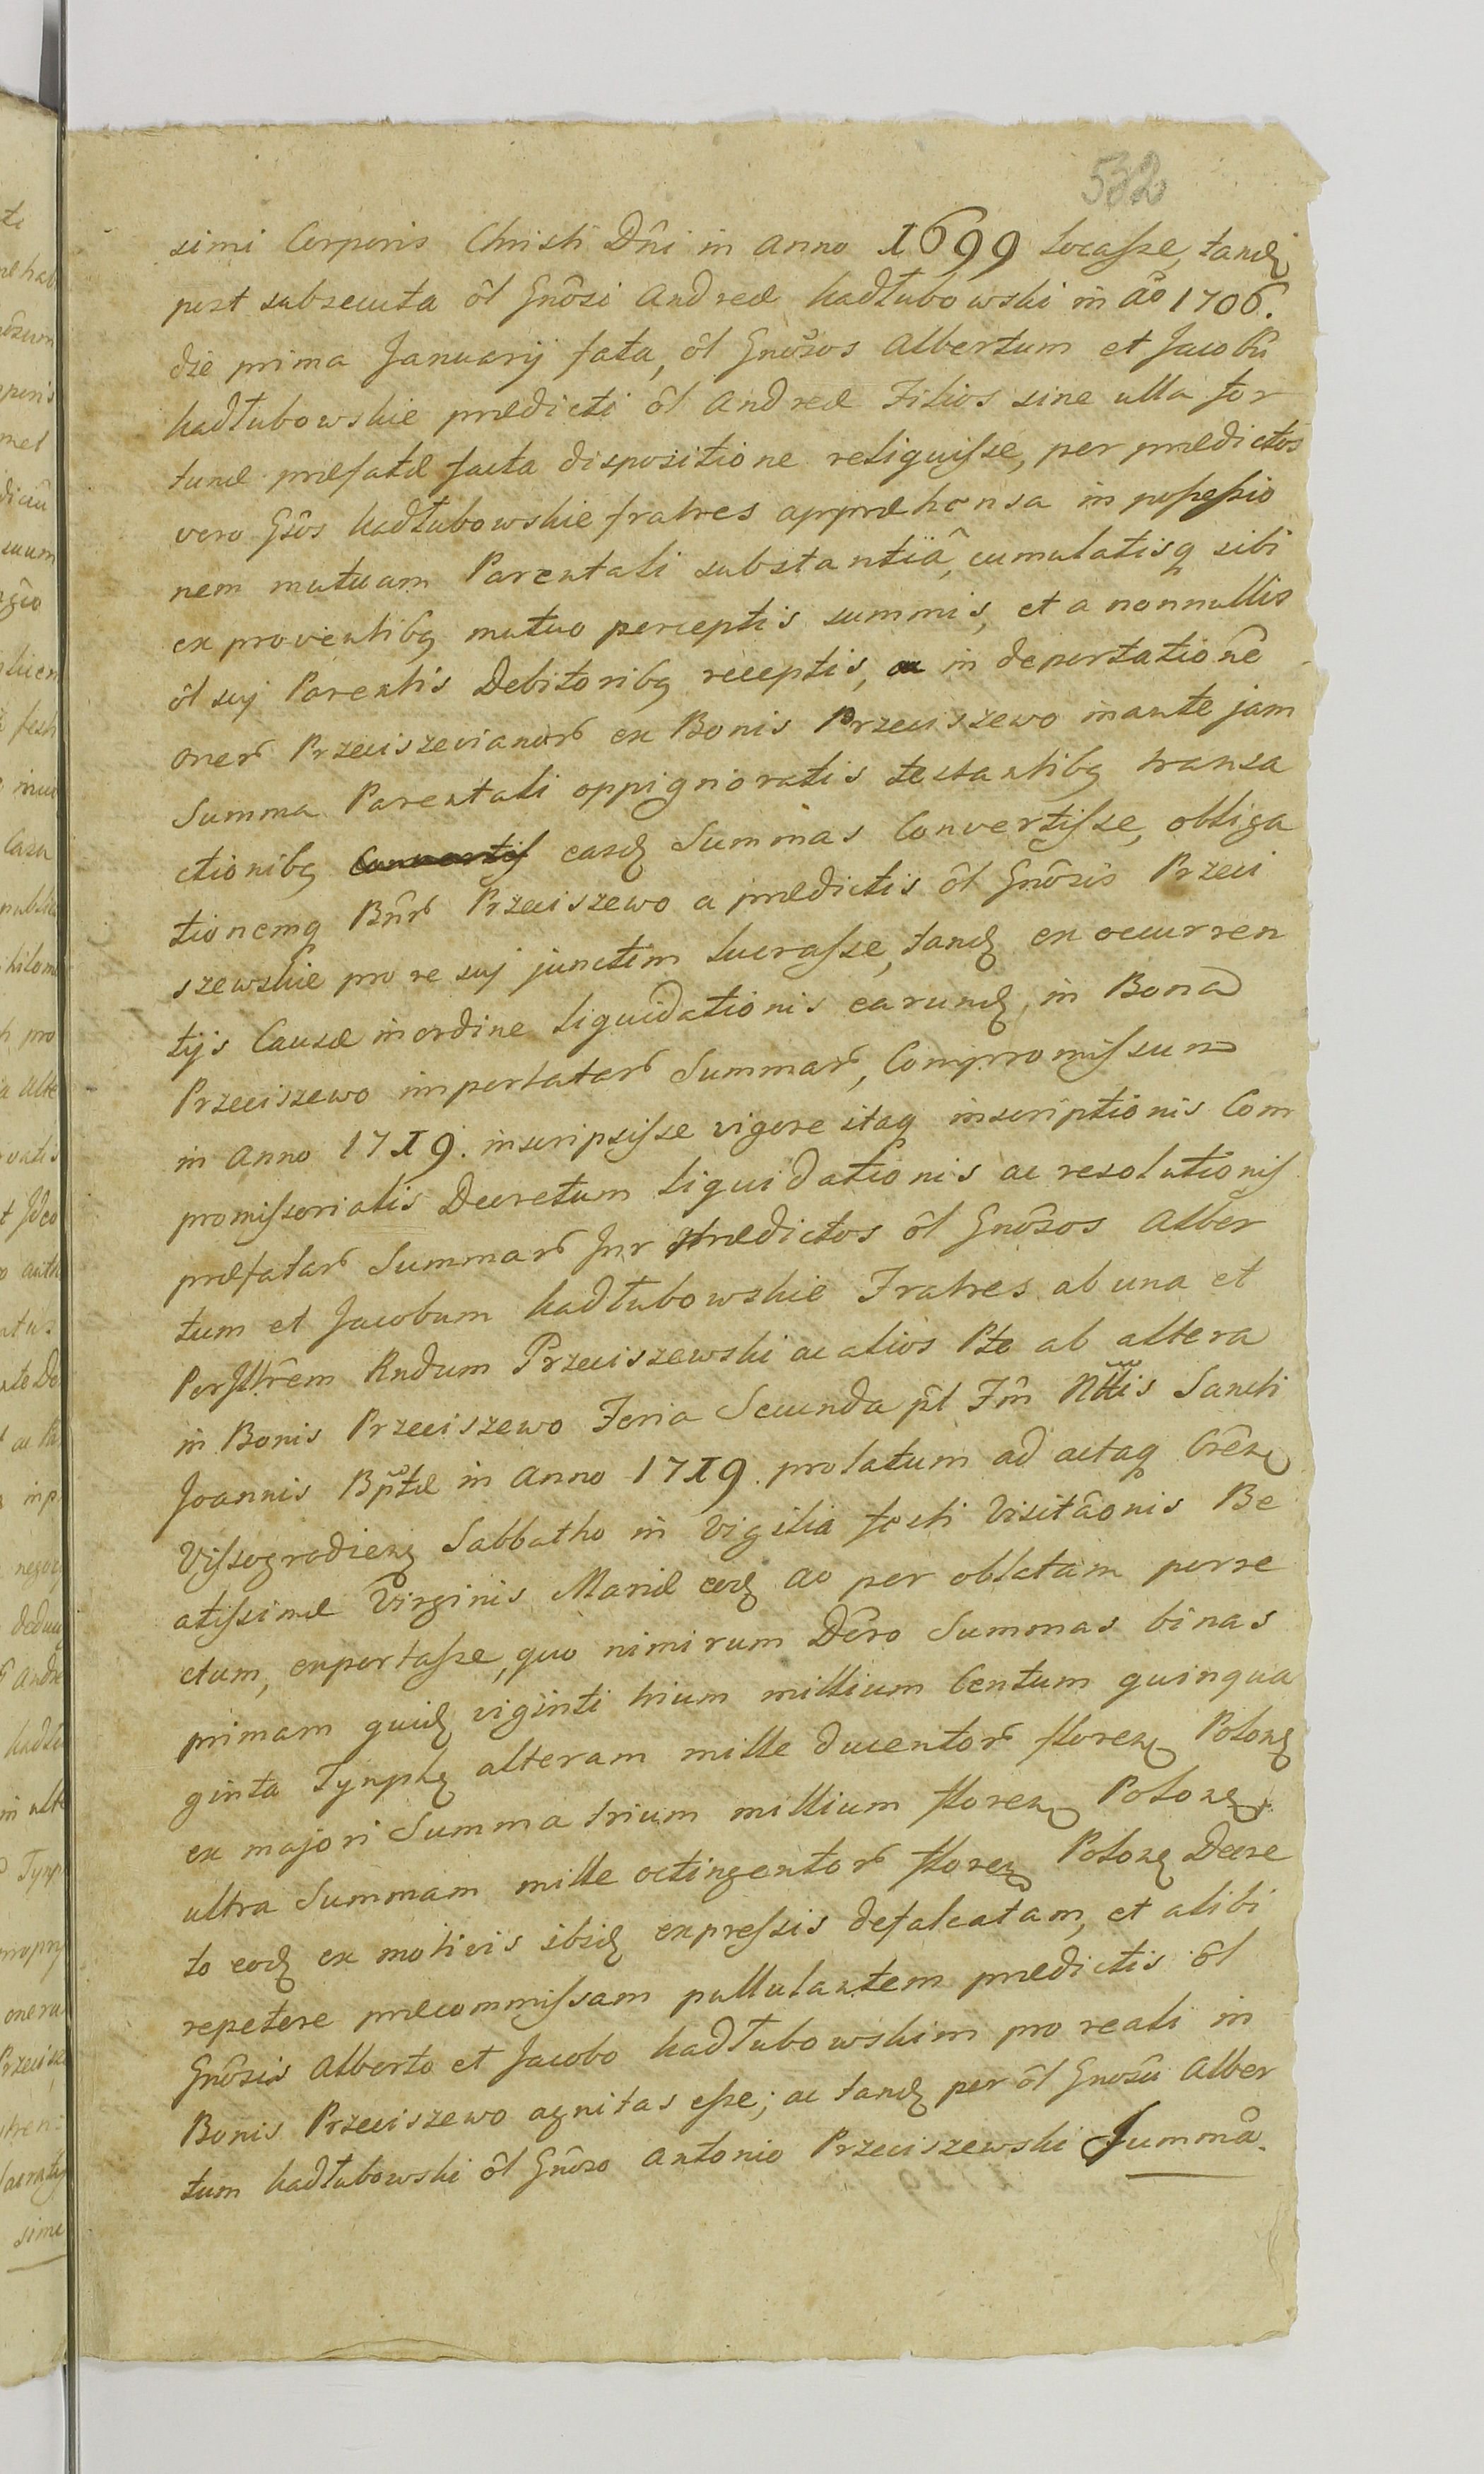 532
simi Corporis Christi Dni in Anno 1699 locasse, tandꝫ
post subsecuta ôl Gnôsi Andreæ Kadłubowski in aô 1706.
die prima Januarij fata, ôl Gnôsos Albertum et Jacobû
Kadłubowskie prædicti ôl Andreæ Filios sine ulla for
tunæ præfatæ facta dispositione reliquisse, per prædictos
vero Gsôs Kadłubowskie fratres appræhensa in possessio
nem mutuam Parentali substantiâ, cumulatisq sibi
ex proventibꝫ mutuo perceptis summis, et a nonnullis
ôl suj Parentis Debitoribꝫ receptis, in deportationê
oner Przeciszevianor ex Bonis Przeciszewo inante jam
Summa Parentali oppignoratis testantibꝫ transa
ctionibꝫ easdꝫ Summas Convertisse, obliga
tionemq Bnr Przeciszewo a prædictis ôl Gnôsis Przeci
szewskie pro re suj junctim lucrasse, tandꝫ ex occurren
tijs Causæ in ordine liquidationis earundꝫ, in Bona
Przeciszewo importatar Summar, Compromissum
in Anno 1719. inscripsisse vigore itaq inscriptionis Com
promissorialis Decretum liquidationis ac resolutionis
præfatar Summar Inr prædictos ôl Gnôsos Alber
tum et Jacobum Kadłubowskie Fratres ab una et
PerIllrêm Rndum Przeciszewski ac alios Pte ab altera
in Bonis Przeciszewo Feria Secunda pt Fm Nttis Sancti
Joannis Bptæ in Anno 1719. prolatum ad actaq Crênꝫ
Vissogradienꝫ Sabbatho in Vigilia festi Visitâonis Be
atissimæ Virginis Mariæ eodꝫ ao per oblatam porre
ctum, exportasse, quo nimirum Dcro Summas binas
primam quidꝫ viginti trium millium Centum quinqua
ginta Tynphꝫ alteram mille ducentor florenꝫ Polonꝫ
ex majori Summa trium millium florenꝫ Polonꝫ
ultra Summam mille octingentor florenꝫ Polonꝫ Decre
to eodꝫ ex motivis ibidꝫ expressis defalcatam, et alibi
repetere præcommissam pullulantem prædictis ôl
Gnôsis Alberto et Jacobo Kadłubowskim pro reali in
Bonis Przeciszewo agnitas esse; ac tandꝫ per ôl Gnosû Alber
tum Kadłubowski ôl Gnôso Antonio Przeciszewski Summâ